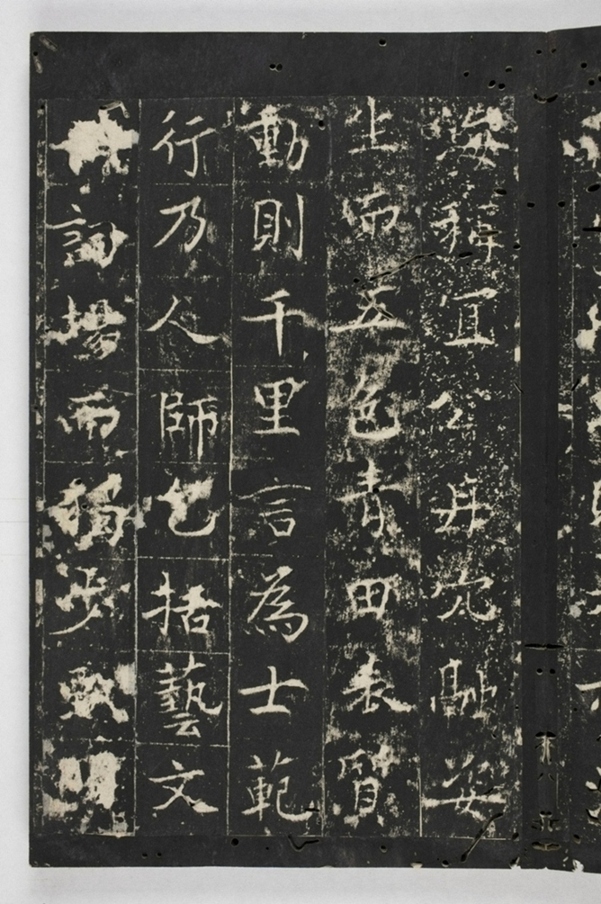 海稱冝公丹穴融姿
生而五色青田表質
動則千里言為士範
行乃人師包括藝文
詞場而獨步